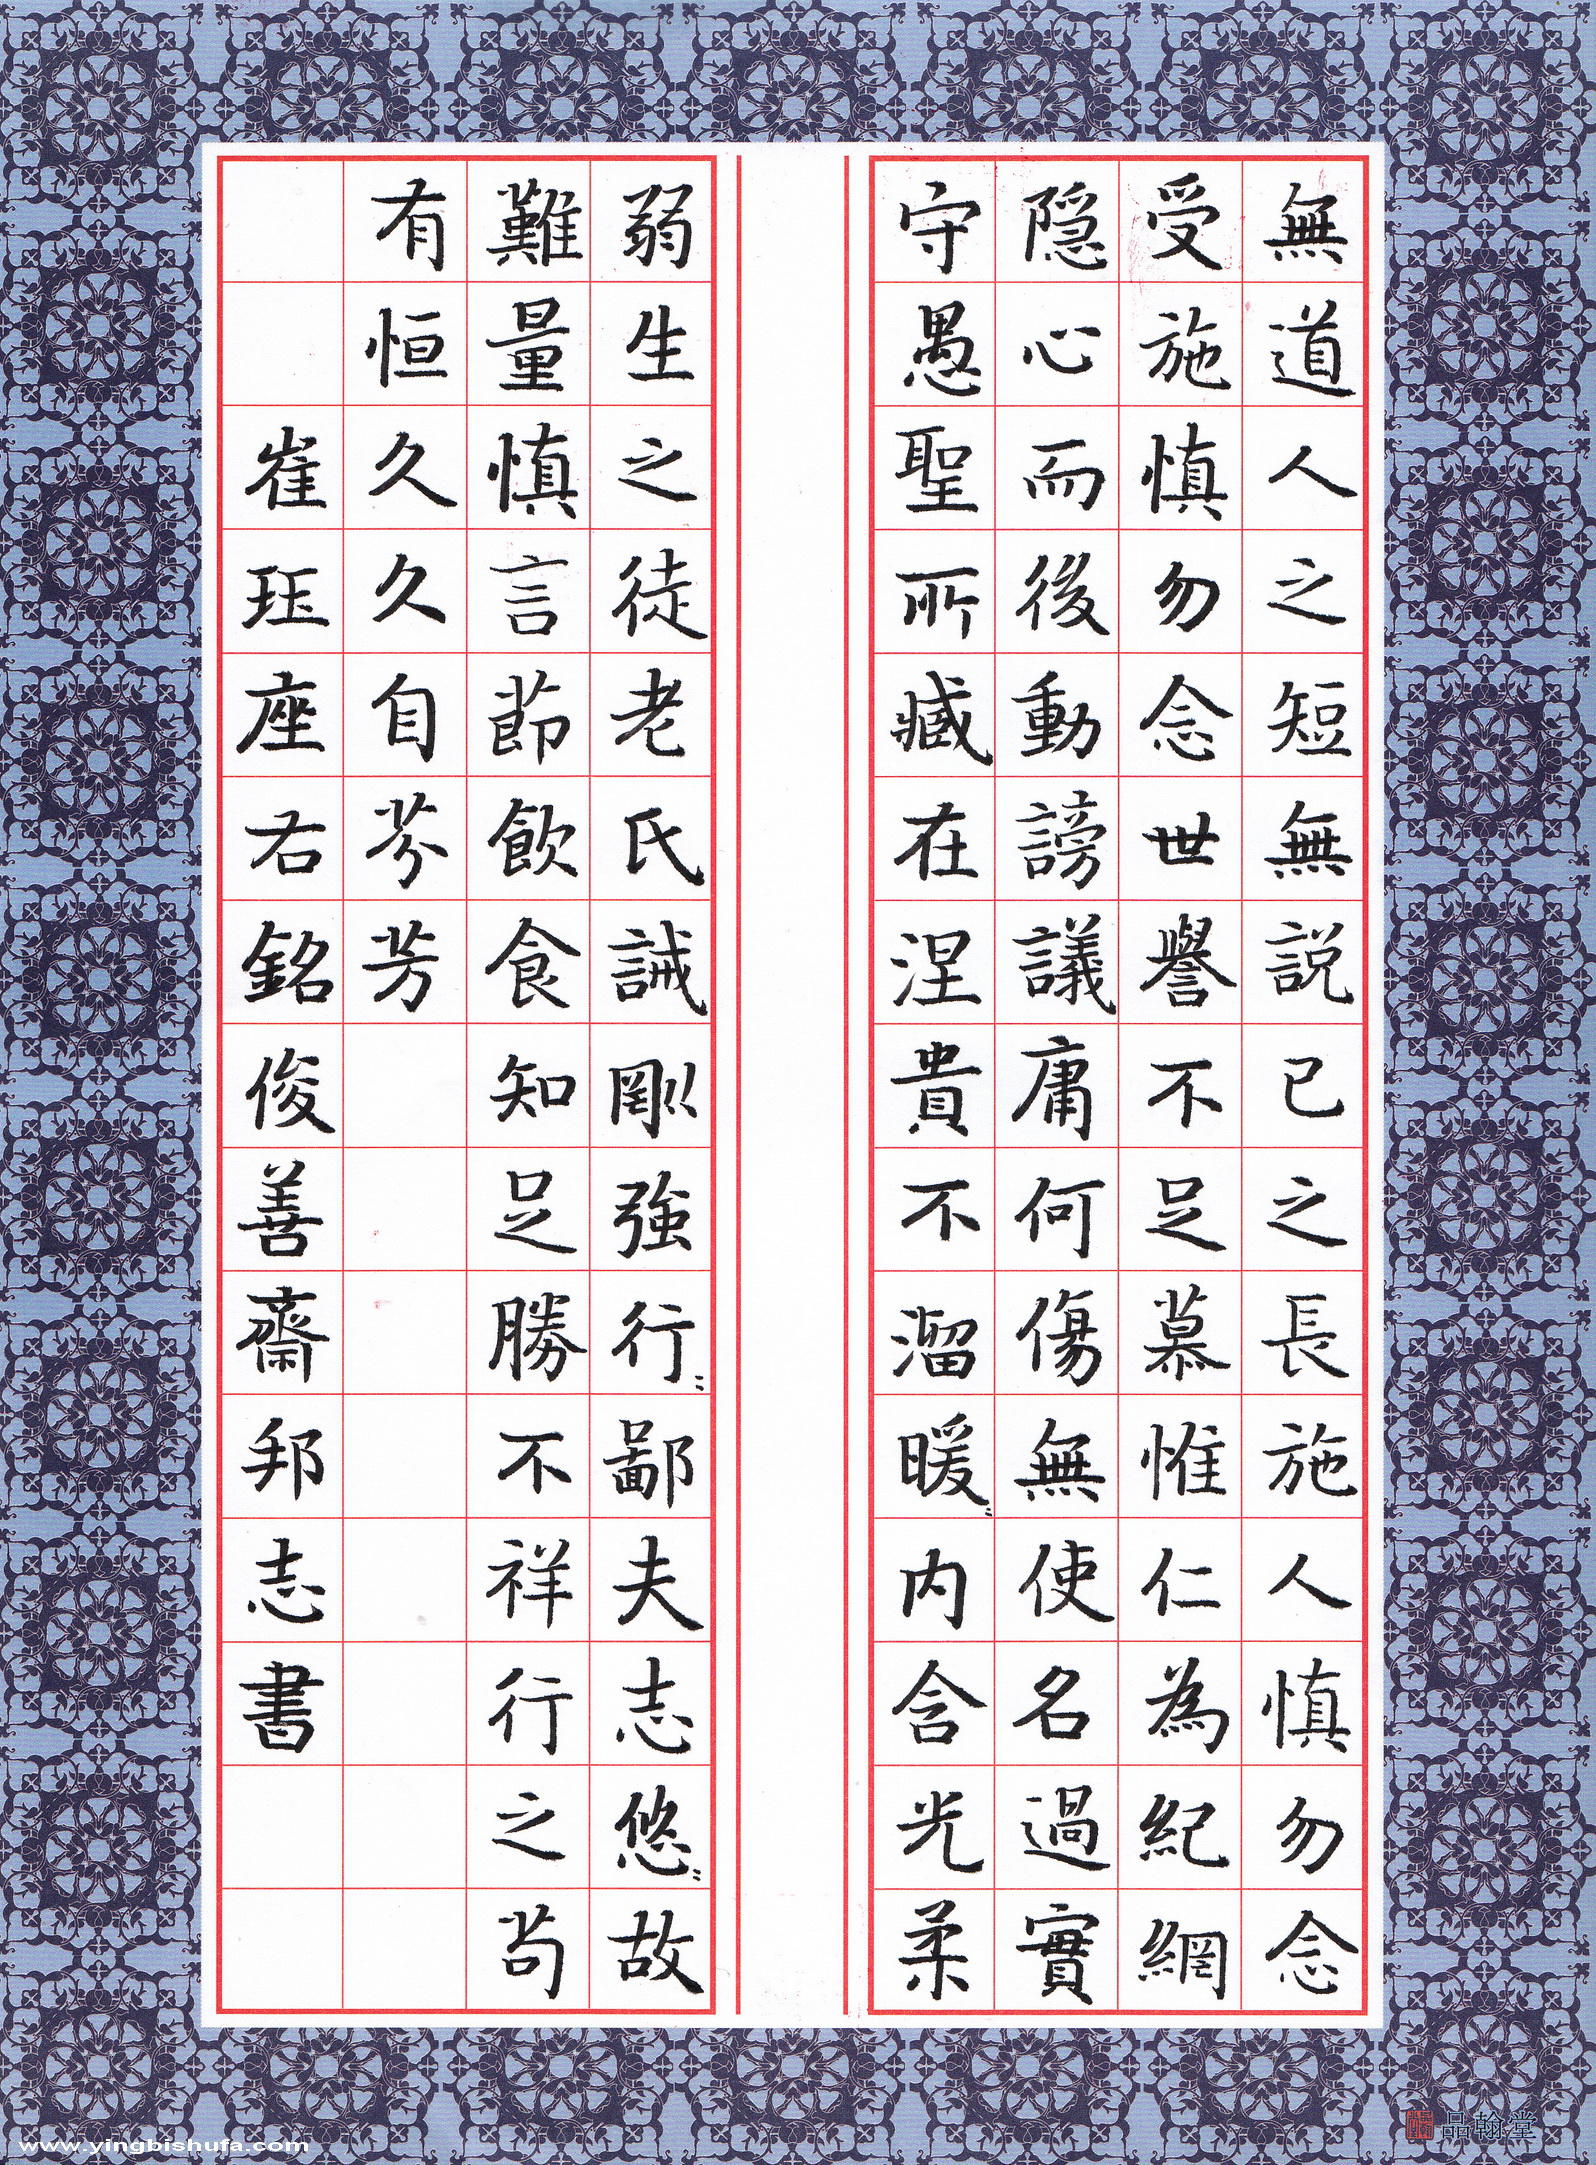 無道人之短無説已之長施人慎勿念
受施慎勿念世譽不足慕惟仁為紀綱
隠心而後動謗議庸何傷無使名過實
守愚聖所臧在涅貴不溜暖〻内含光柔
弱生之徒老氏誡剛強行〻鄙夫志悠〻故
難量慎言節飲食知足勝不祥行之苟
有恒久久自芬芳
崔珏座右銘俊善齋邦志書
品翰堂
www.yingbishufa.com